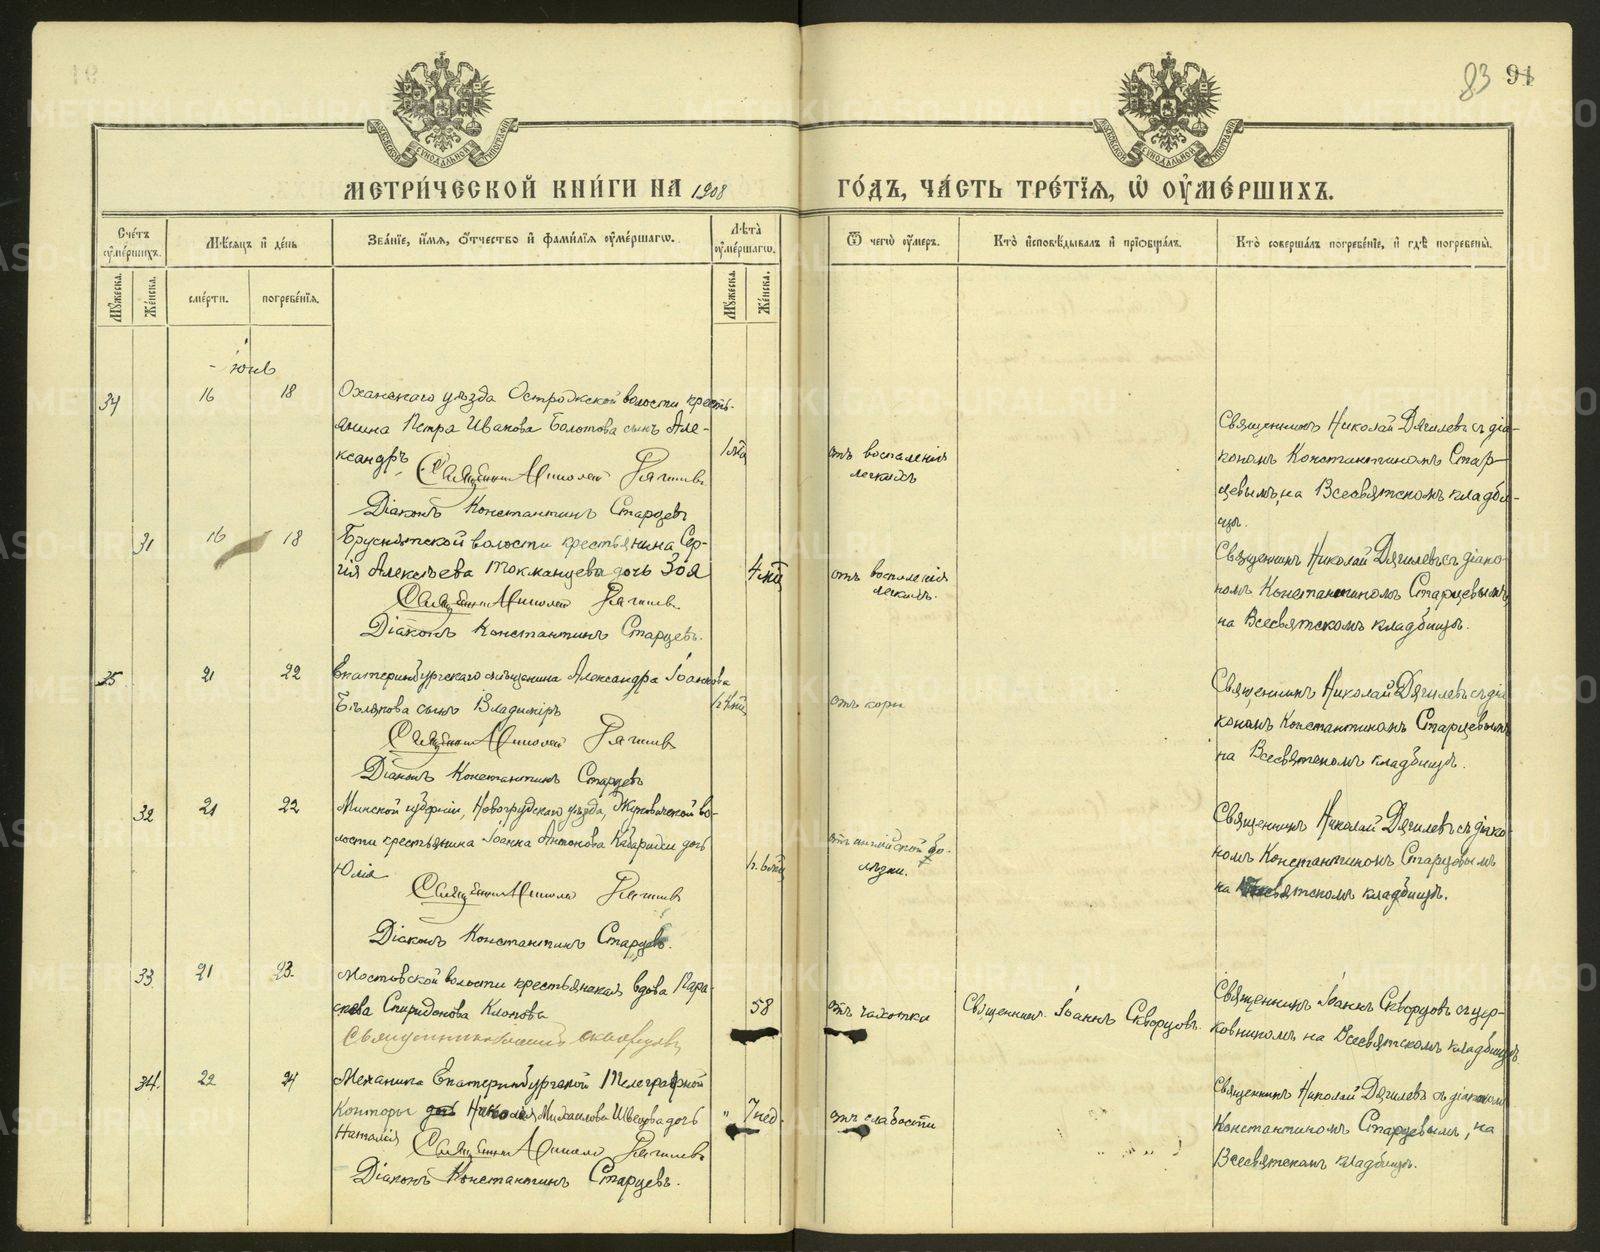 83 91
МЕТРИ́ЧЕСКОЙ КНИ́ГИ НА 1908 ГО́ДЪ, ЧА́СТЬ ТРЕ́ТІѦ, Ѡ҆ ОУ҆МЕ́РШИХЪ.
Сче́тъ оу҆ме́ршихъ.
Мѣ́сяцъ и҆ де́нь
Зва́нїе, и҆́мя, ѻ҆́тчество и҆ фами́лїя оу҆ме́ршагѡ.
Лѣ́та оу҆ме́ршагѡ.
Ѿ чегѡ̀ оу҆́меръ.
Кто̀ и҆сповѣ́дывалъ и҆ прїѡбща́лъ.
Кто̀ соверша́лъ погребе́нїе, и҆ гдѣ̀ погребены̀.
Му́жеска.
Же́нска.
сме́рти.
погребе́нїя.
Му́жеска.
Же́нска.
Юнь
34 16 18 Оханскаго уѣзда Острожской волости кресть-
янина Петра Иванова Болотова сынъ Але-
ксандръ
Священникъ Николай Дягилевъ
Діаконъ Константинъ Старцевъ
отъ воспаленія
легкихъ
Священникъ Николай Дягилевъ съ діа-
кономъ Константиномъ Стар-
цевымъ, на Всесвятскомъ кладби-
щѣ.
31 16 18 Бруснятской волости крестьянина Сер-
гія Алексѣева Токманцева дочь Зоя
Священникъ Николай Дягилевъ
Діаконъ Константинъ Старцевъ.
4 мц
отъ воспаленія
легкихъ.
Священникъ Николай Дягилевъ съ діако-
номъ Константиномъ Старцевымъ,
на Всесвятскомъ кладбищѣ.
35 21 22 Екатеринбургскаго мѣщанина Александра Іоаннова
Бѣлякова сынъ Владиміръ
Священникъ Николай Дягилевъ
Діаконъ Константинъ Старцевъ
отъ кори
Священникъ Николай Дягилевъ съ діа-
кономъ Константиномъ Старцевымъ
на Всесвятскомъ кладбищѣ.
32 21 22 Минской губерніи, Новогрудскаго уѣзда, во-
лости крестьянина Іоанна Антонова дочь
Юлія
Священникъ Николай Дягилевъ
Діаконъ Константинъ Старцевъ.
отъ англійской бо-
лѣзни.
Священникъ Николай Дягилевъ съ діако-
номъ Константиномъ Старцевымъ
на Всесвятскомъ кладбищѣ.
33. 21 23. Мостовской волости крестьянская вдова Пара-
скева Спиридонова Клопова
Священникъ Іоаннъ Скворцовъ
58
отъ чахотки
Священникъ Іоаннъ Скворцовъ.
Священникъ Іоаннъ Скворцовъ съ цер-
ковникомъ на Всесвятскомъ кладбищѣ.
34. 22 24 Механика Екатеринбургской Телеграфной
Конторы Николая Михаилова Швецова дочь
Наталія
Священникъ Николай Дягилевъ
Діаконъ Константинъ Старцевъ.
" 7 нед.
отъ слабости
Священникъ Николай Дягилевъ съ діакономъ
Константиномъ Старцевымъ, на
Всесвятскомъ кладбищѣ.